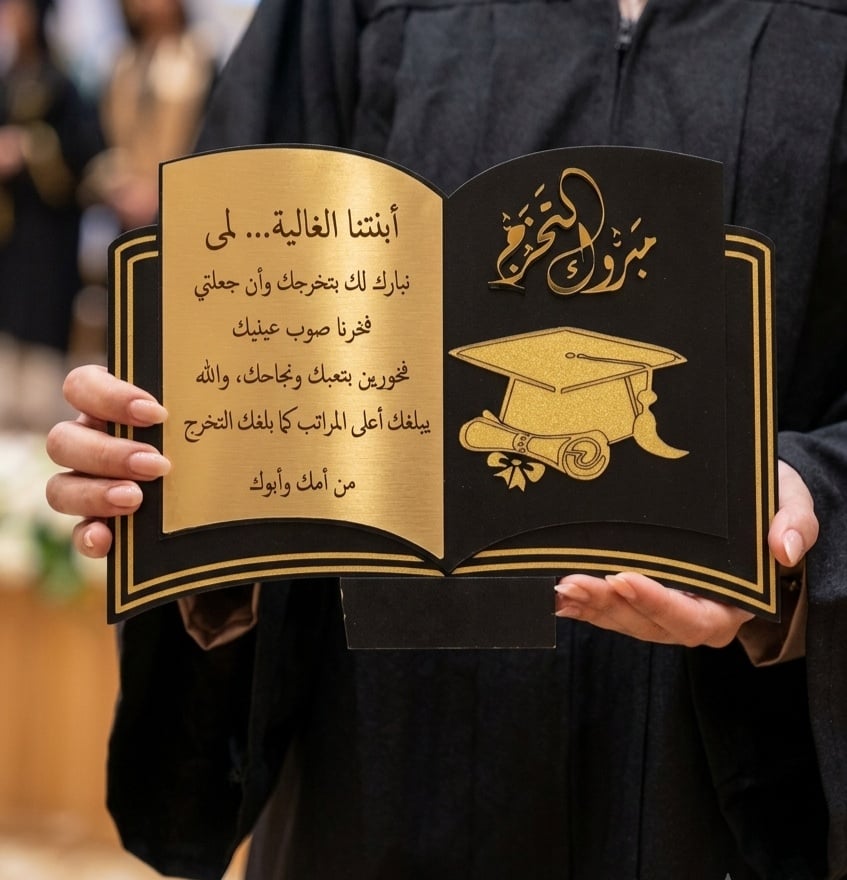 مبروك التخرج
أبنتنا الغالية... لمى
نبارك لك بتخرجك وأن جعلتي
فخرنا صوب عينيك
فخورين بتعبك ونجاحك، والله
يبلغك أعلى المراتب كما بلغك التخرج
من أمك وأبوك